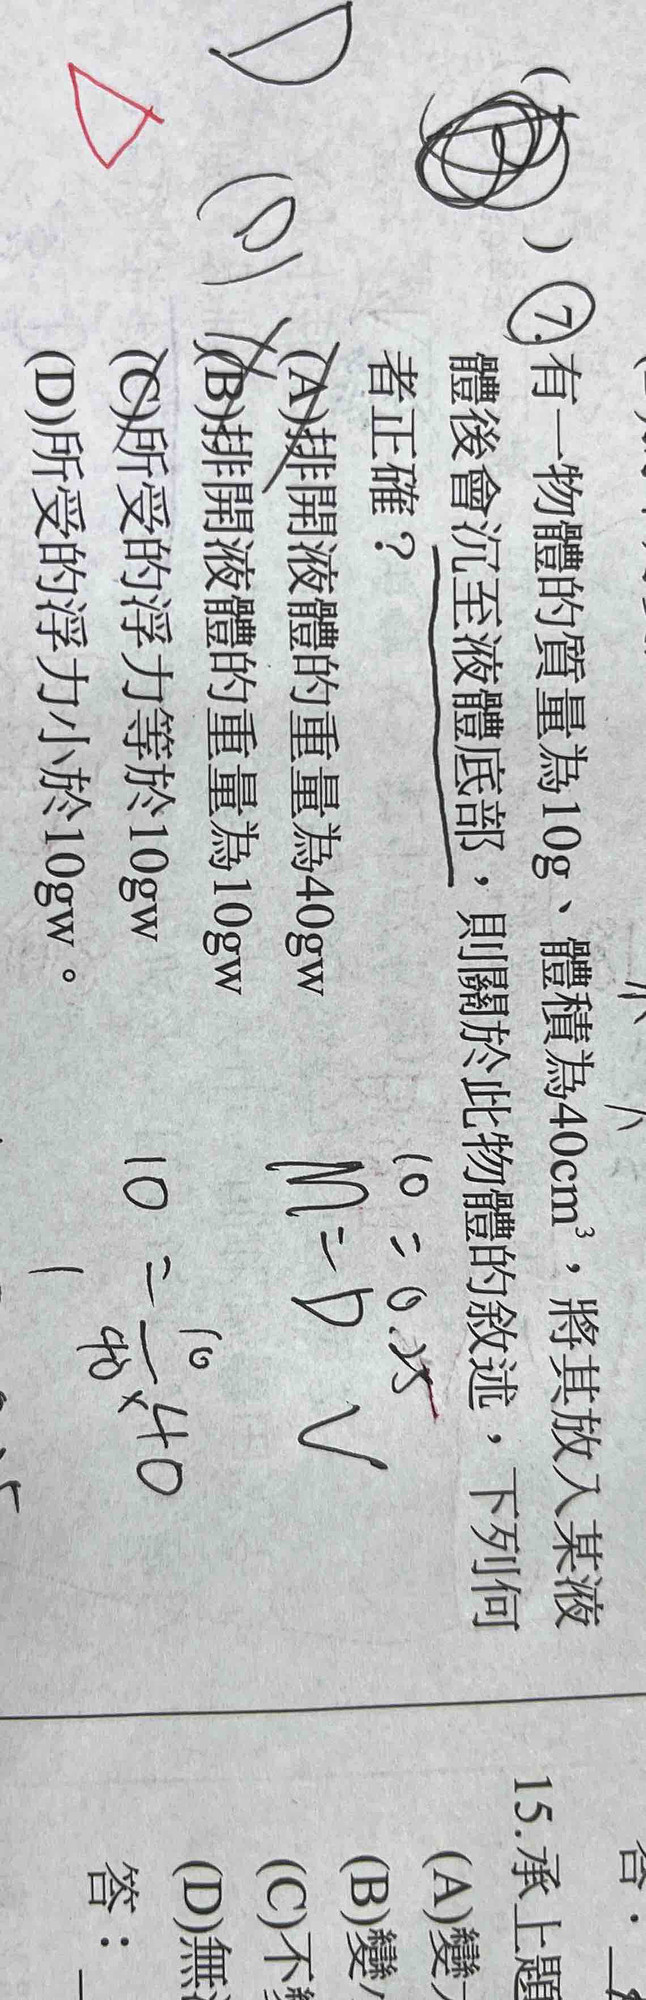 ( ) 7. 有一物體的質量為10g、體積為40cm³，將其放入某液
體後會沉至液體底部，則關於此物體的敘述，下列何
者正確？
(A)排開液體的重量為40gw
(B)排開液體的重量為10gw
(C)所受的浮力等於10gw
(D)所受的浮力小於10gw。
D
(D)
10 = 0.25
M = D V
10 = 10/40 × 40
15.承上題
(A)變
(B)變
(C)不
(D)無
答：